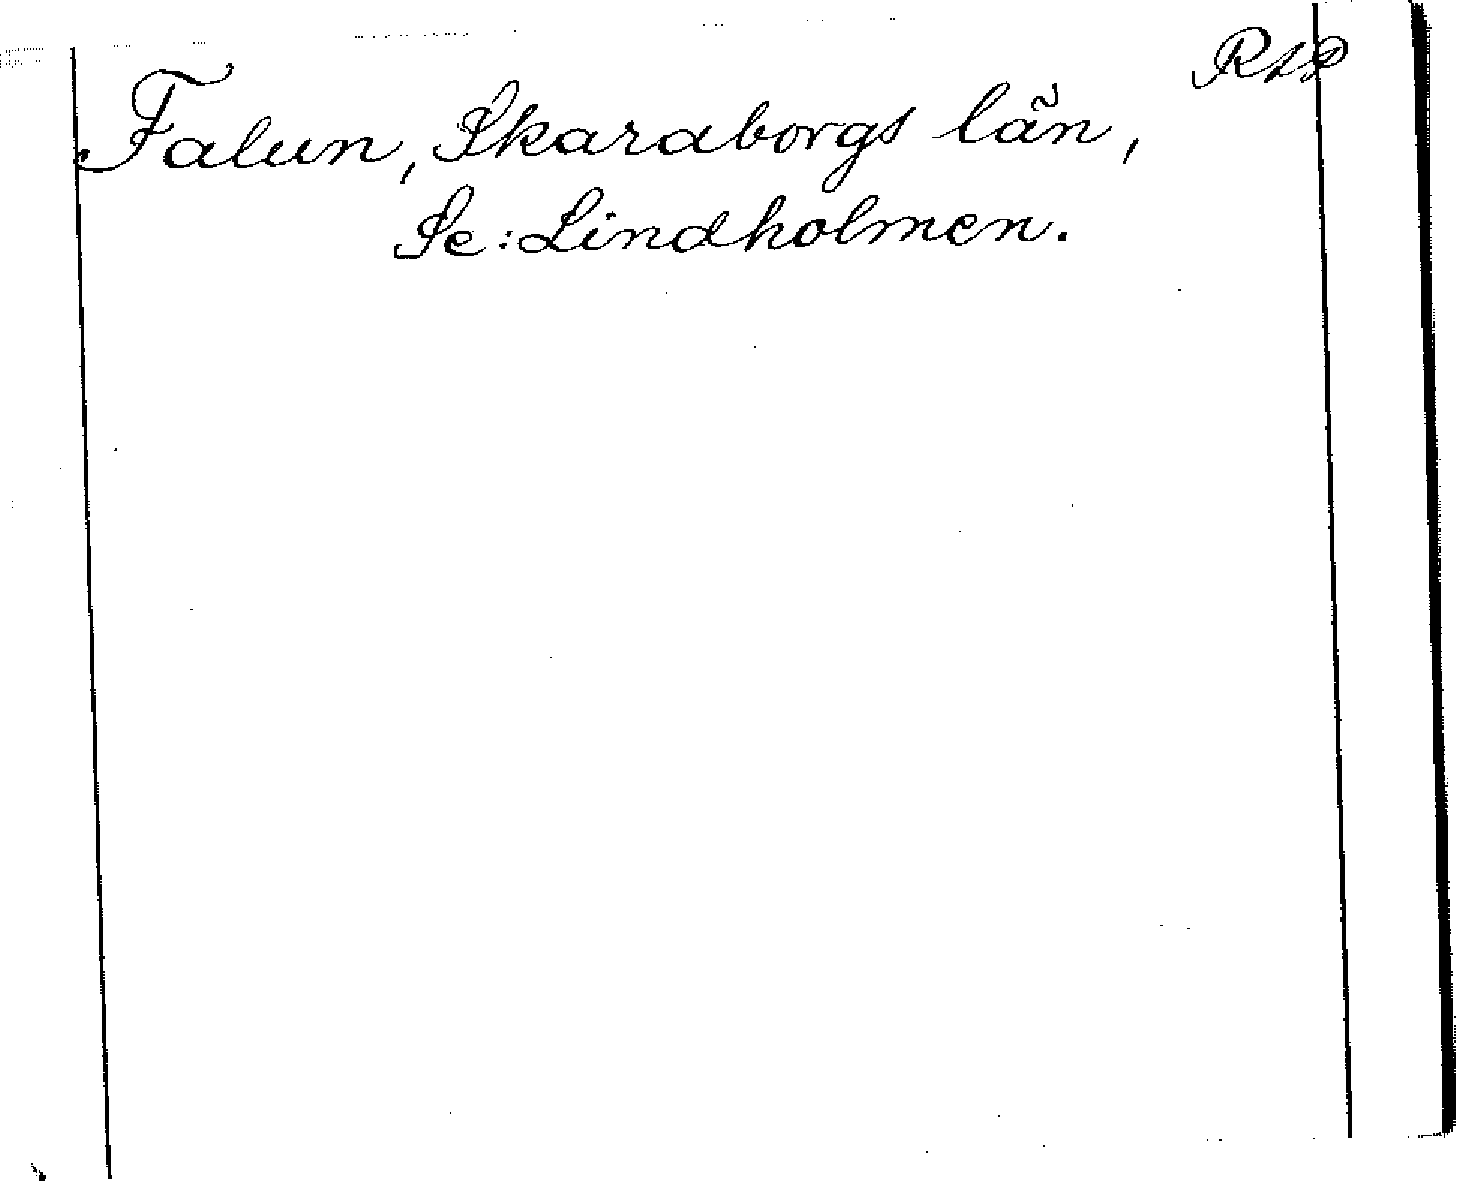 Falun, Skaraborgs län,
Se: Lindholmen.